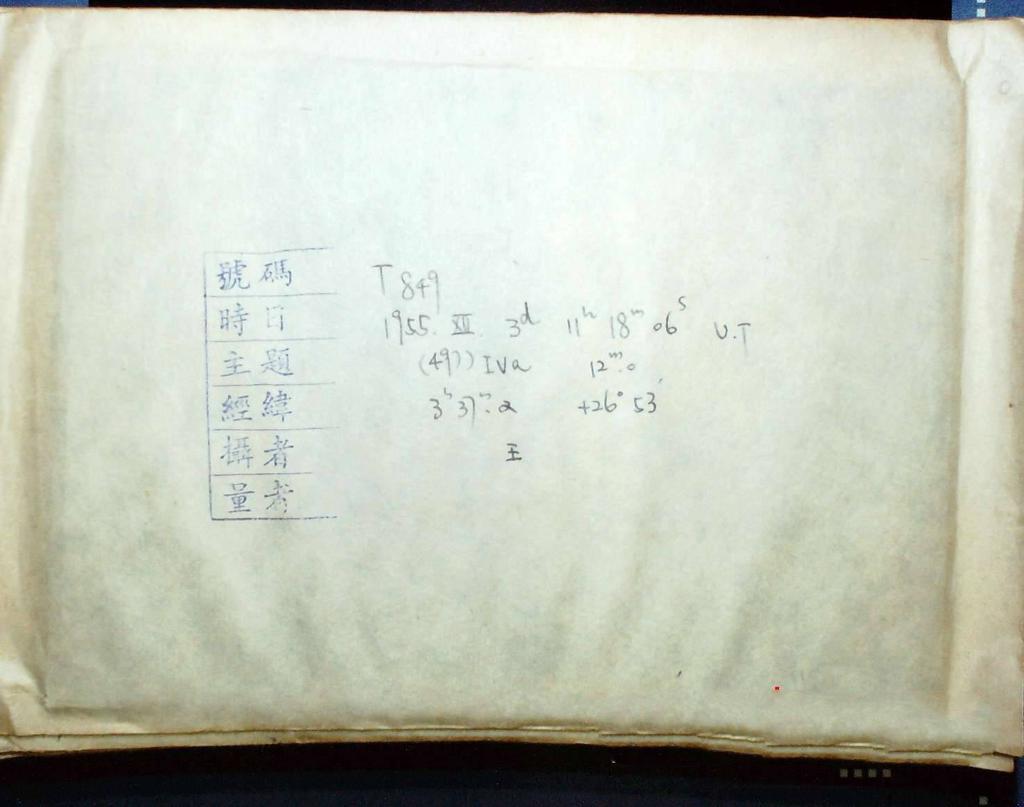 號碼 T 849
時日 1955. XII. 3d 11h 18m 06s U.T
主題 (497) IVa 12m.0
經緯 3h 37m.2 +26° 53'
攝者 王
量者